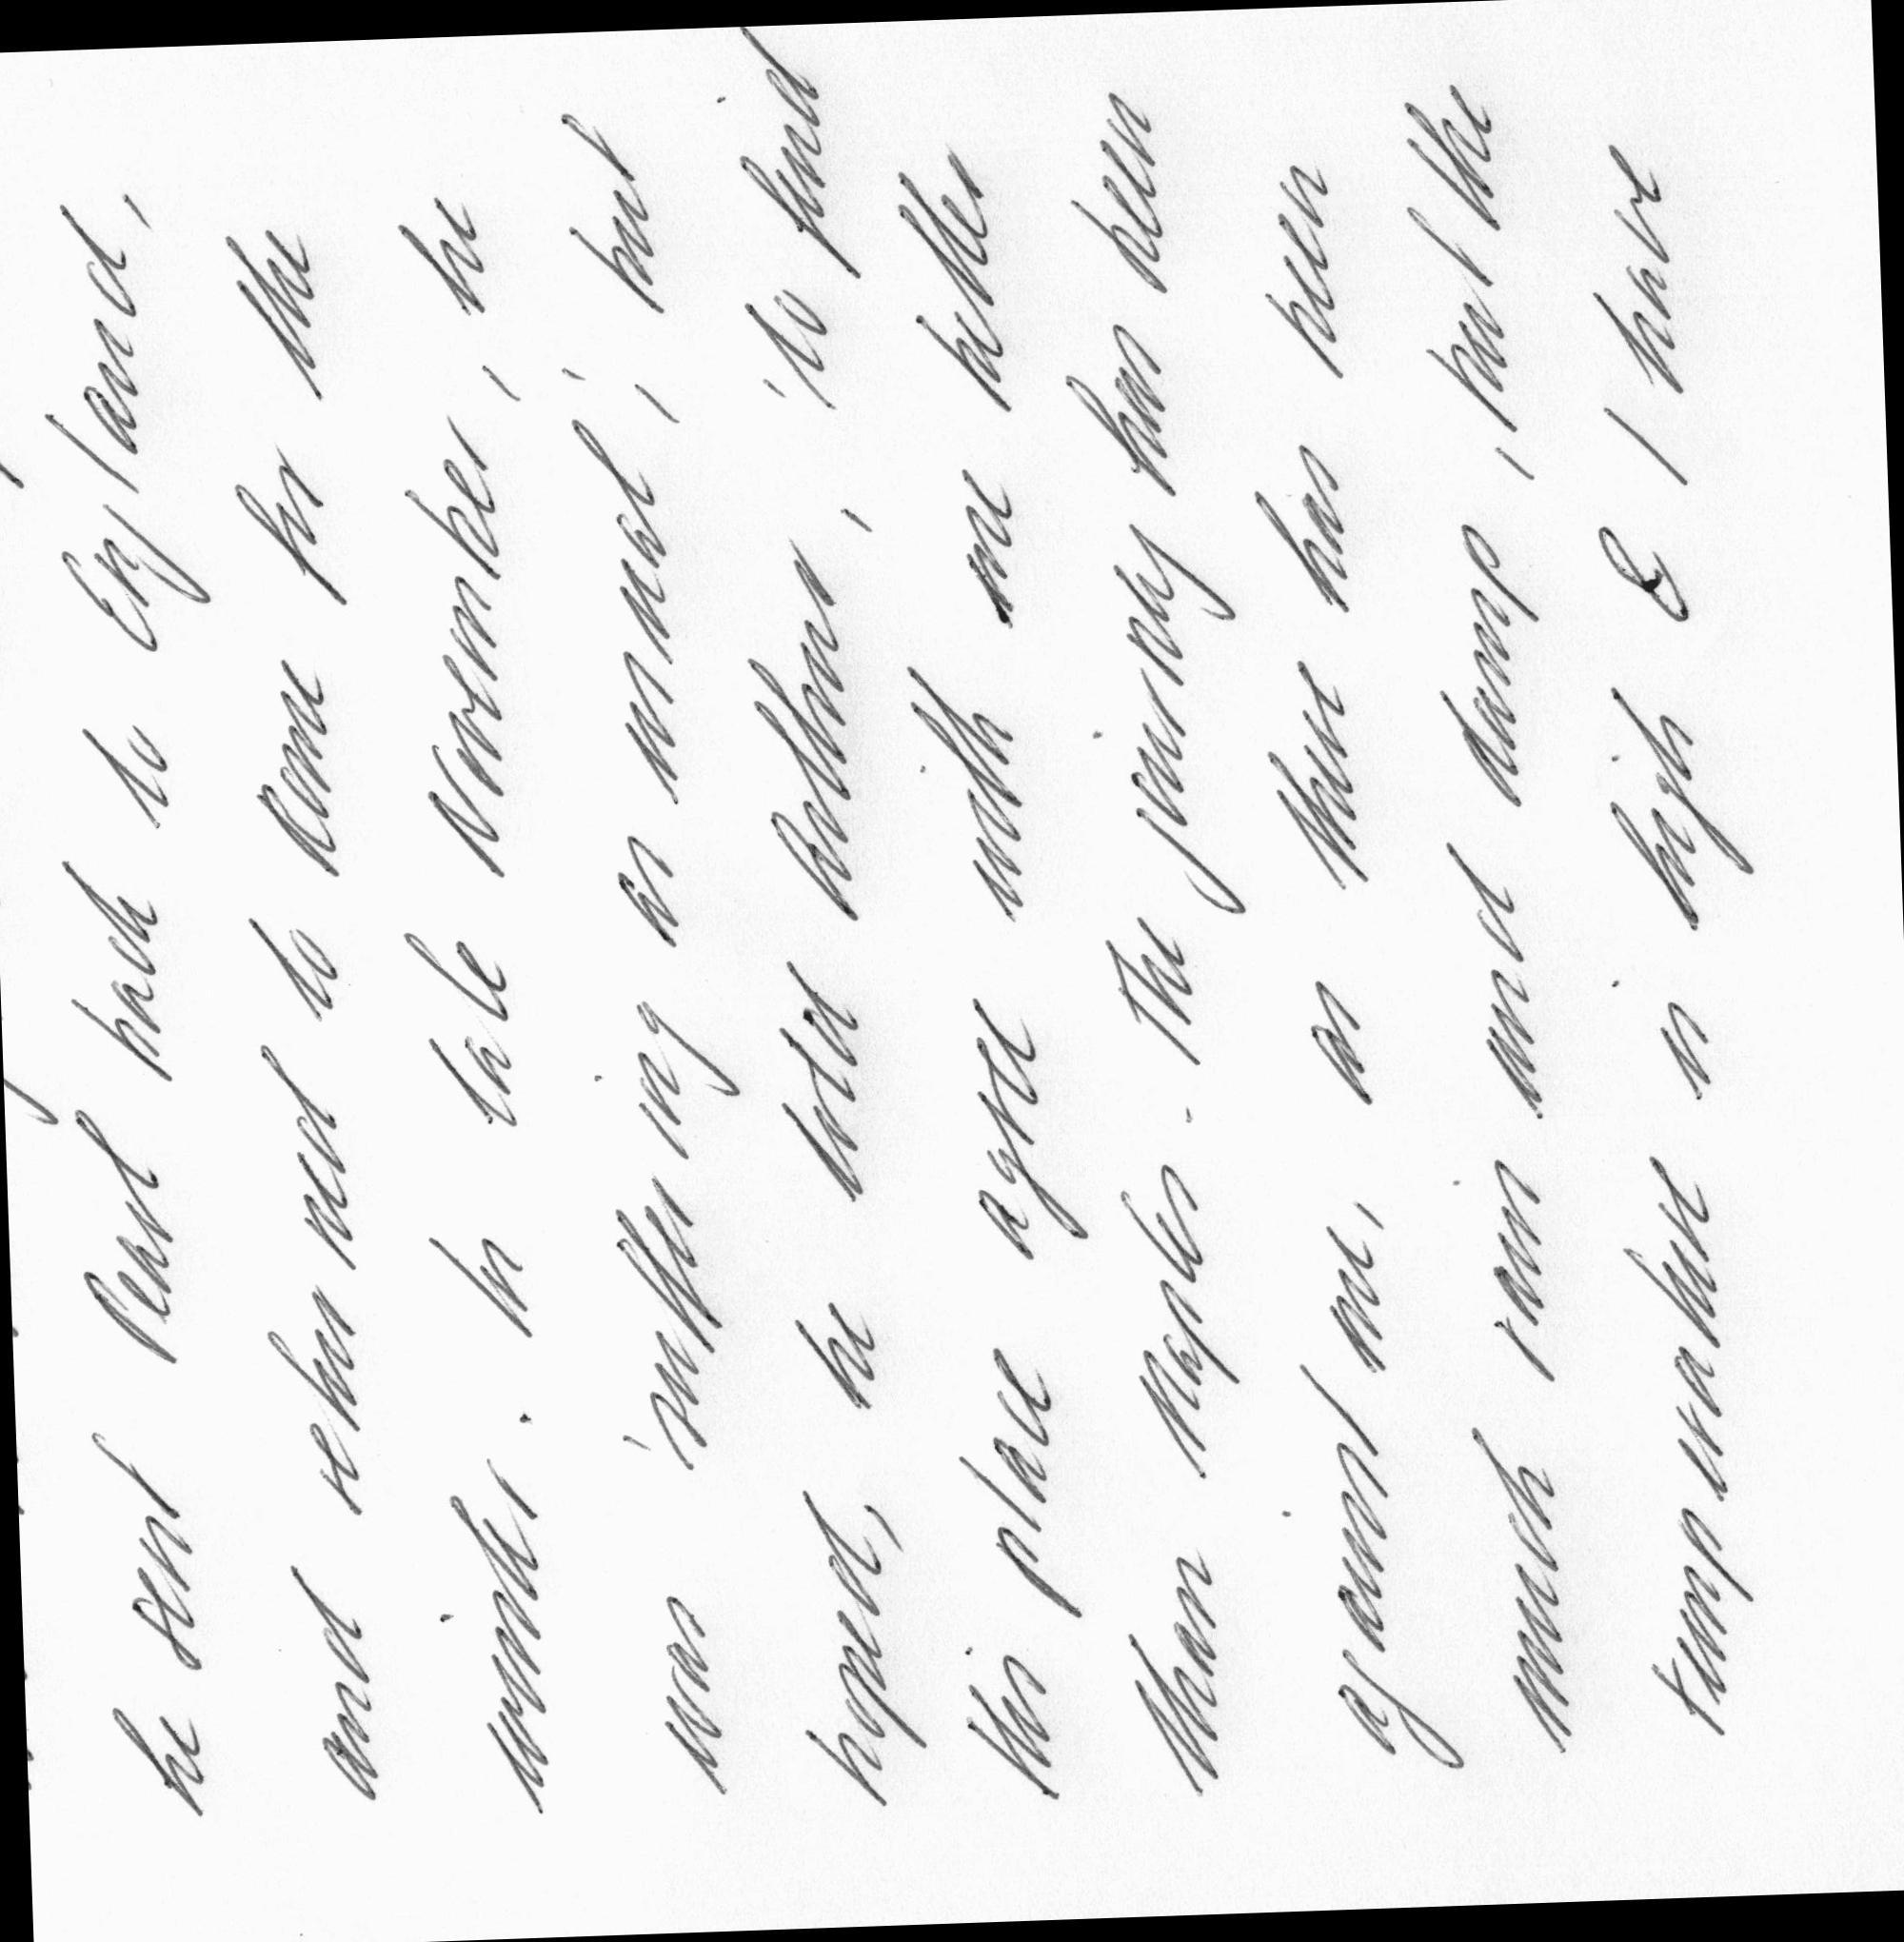 he sent Pearl back to England,
and returned to Rome for the
winter. In late November, he
was 'suffering as usual', but
hoped, he told Balfour, 'to find
this place agree with me better
than Naples. The journey has been
against me, as there has been
much rain and damp, but the
temperature is high & I have